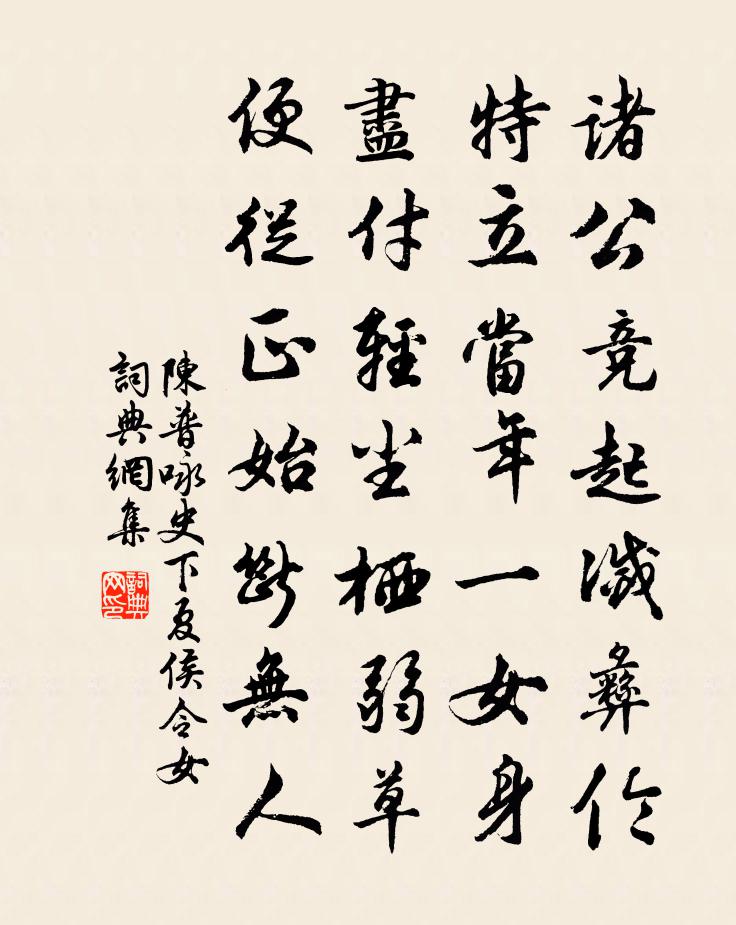 諸公競起滅彝倫
特立當年一女身
盡付輕塵栖弱草
便從正始斷無人
陳普咏史下夏侯令女
詞典網集
詞典网印